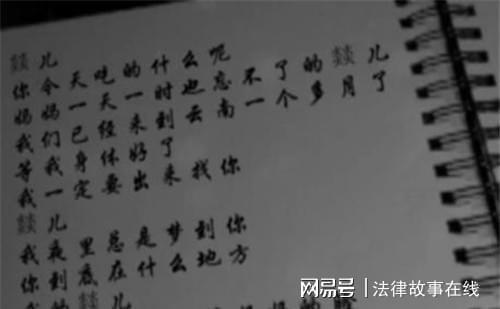 燚儿
你今天吃的什么呢
妈妈一天一时也忘不了的燚儿
我们已经来到云南一个多月了
等我身体好了
我一定要出来找你
燚儿
我夜里总是梦到你
你到底在什么地方
我的燚儿
网易号 | 法律故事在线